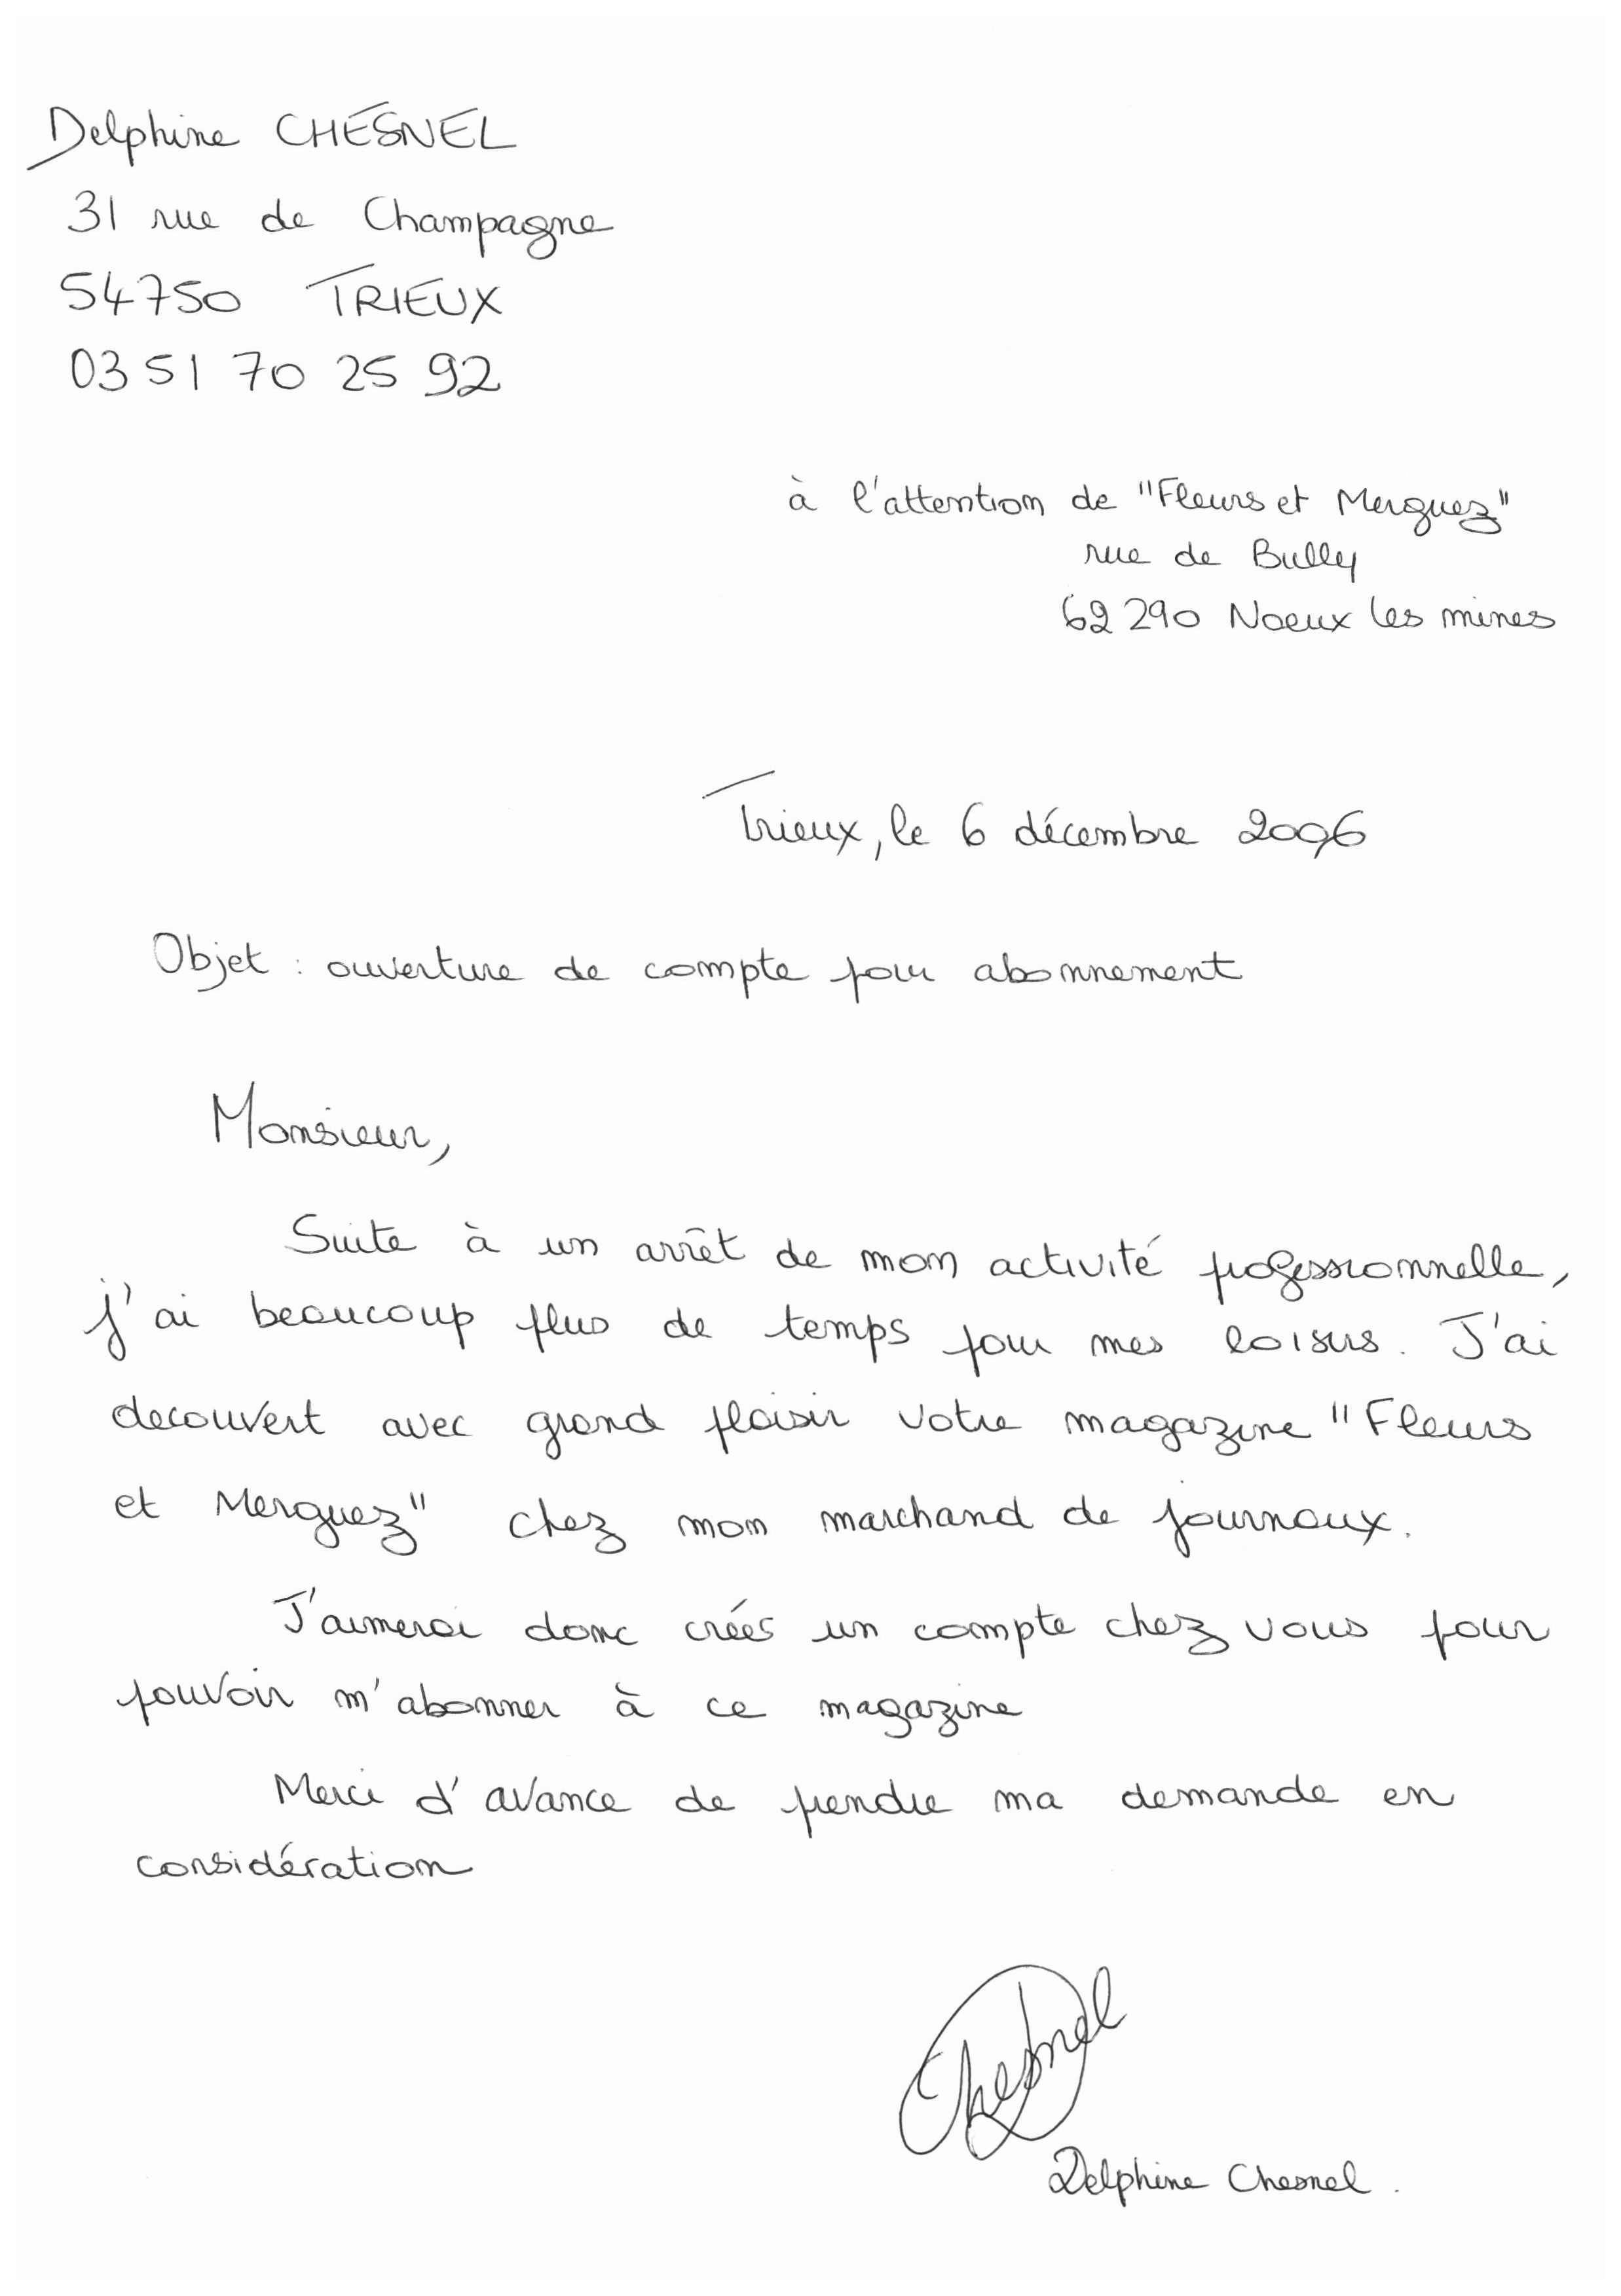 Delphine CHESNEL
31 rue de Champagne
54750 TRIEUX
03 51 70 25 92
à l'attention de "Fleurs et Merguez"
rue de Bully
62290 Noeux les mines
Trieux, le 6 décembre 2006
Objet : ouverture de compte pour abonnement
Monsieur,
Suite à un arrêt de mon activité professionnelle,
j'ai beaucoup plus de temps pour mes loisirs. J'ai
decouvert avec grand plaisir votre magazine "Fleurs
et Merguez" chez mon marchand de journaux.
J'aimerai donc créés un compte chez vous pour
pouvoir m'abonner à ce magazine
Merci d'avance de prendre ma demande en
considération
Chesnel
Delphine Chesnel.